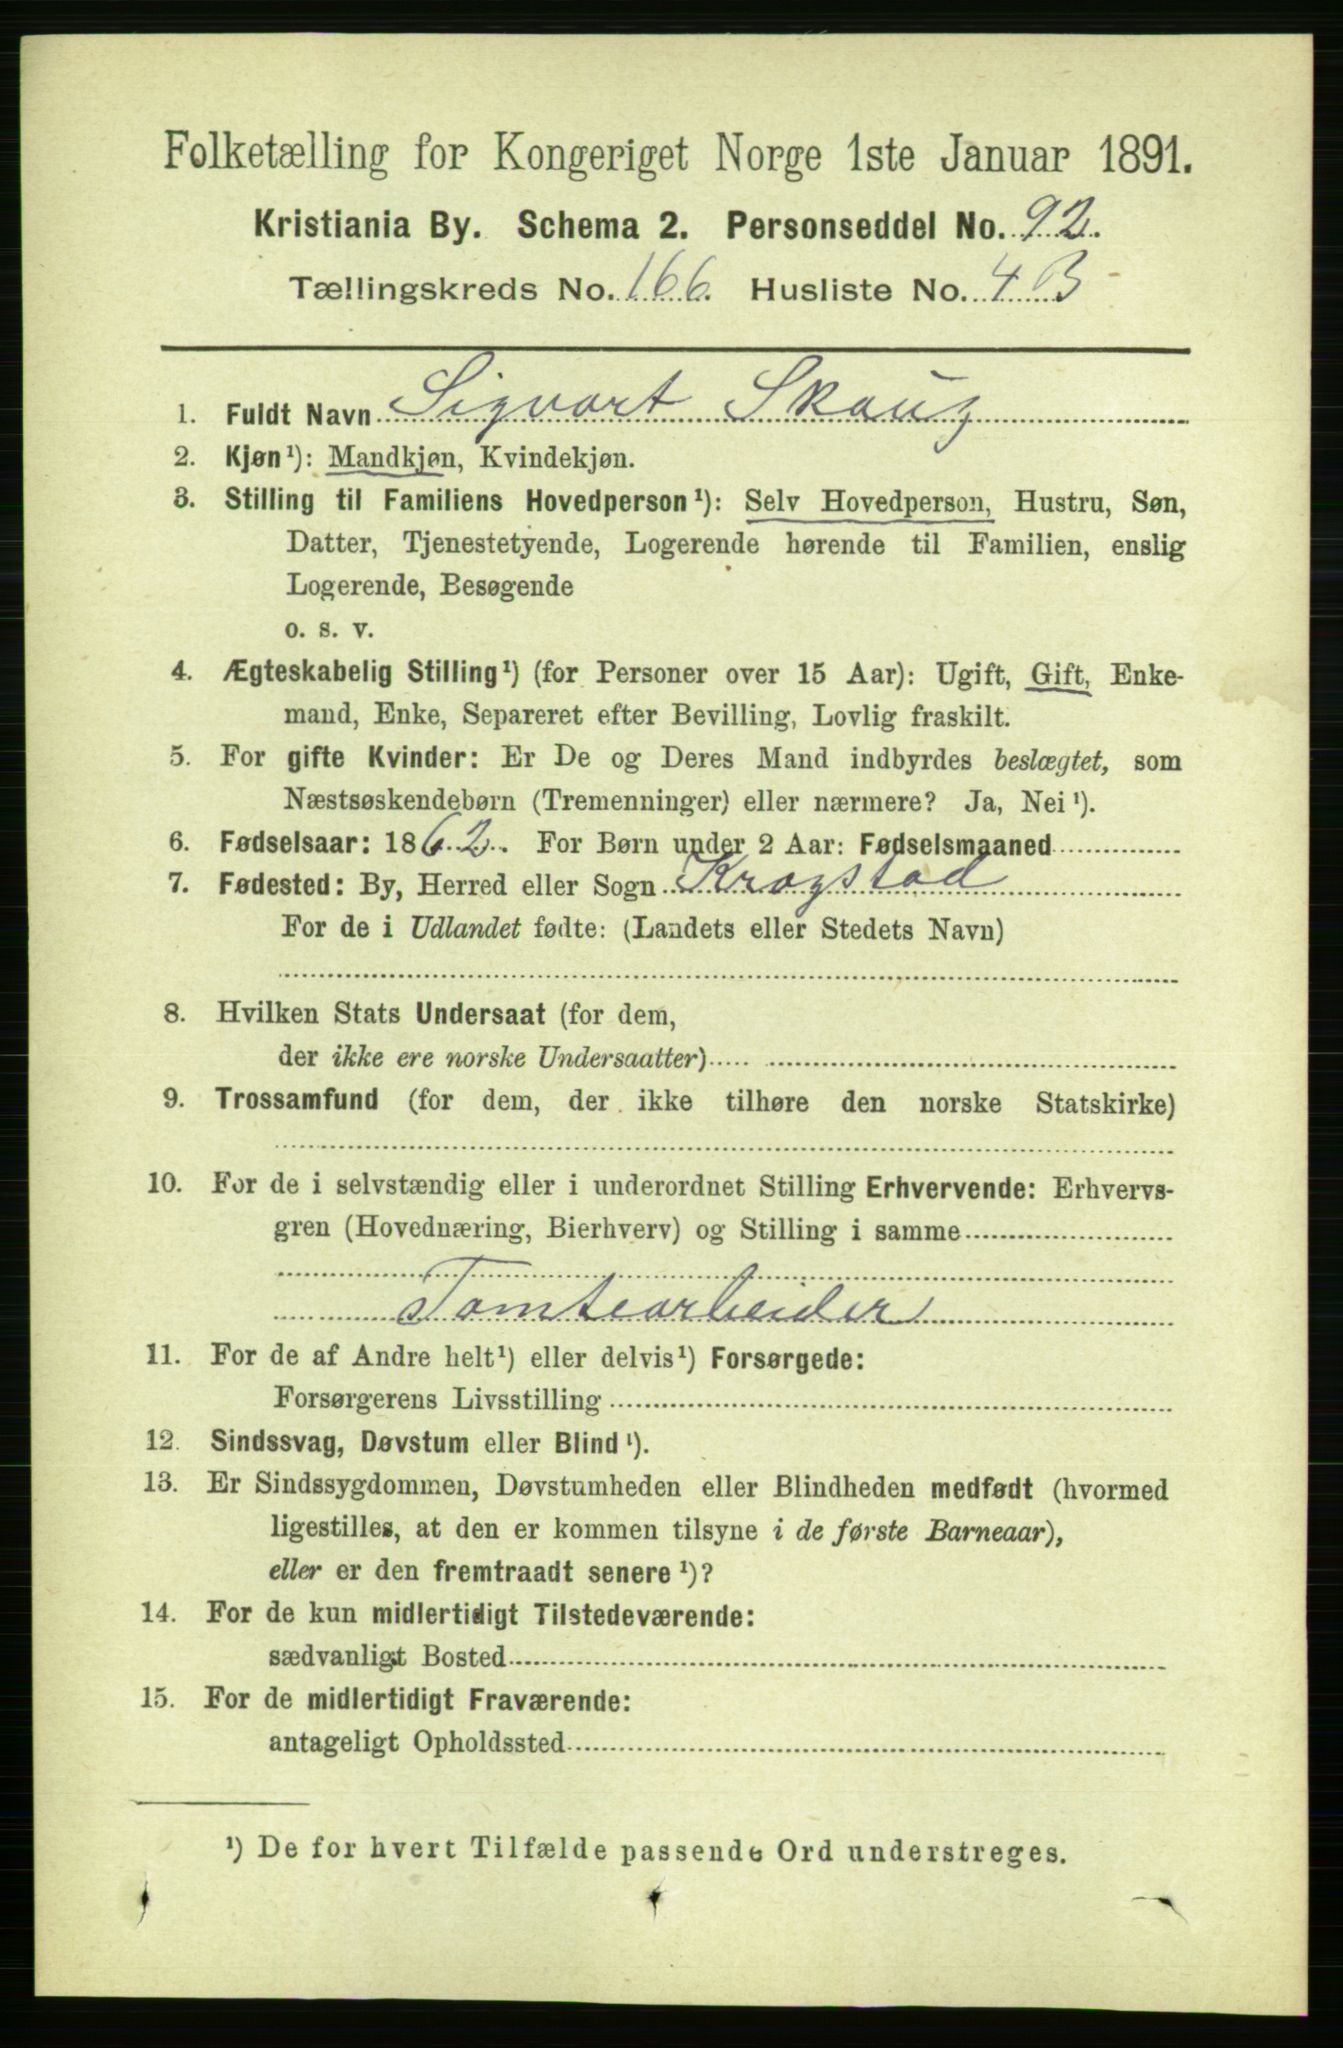 Folketælling for Kongeriget Norge 1ste Januar 1891.
Kristiania By. Schema 2. Personseddel No. 92.
Tællingskreds No. 166. Husliste No. 4 B
1. Fuldt Navn Sigvart Skaug
2. Kjøn¹): Mandkjøn, Kvindekjøn.
3. Stilling til Familiens Hovedperson¹): Selv Hovedperson, Hustru, Søn,
Datter, Tjenestetyende, Logerende hørende til Familien, enslig
Logerende, Besøgende
o. s. v.
4. Ægteskabelig Stilling¹) (for Personer over 15 Aar): Ugift, Gift, Enke-
mand, Enke, Separeret efter Bevilling, Lovlig fraskilt.
5. For gifte Kvinder: Er De og Deres Mand indbyrdes beslægtet, som
Næstsøskendebørn (Tremenninger) eller nærmere? Ja, Nei¹).
6. Fødselsaar: 1862. For Børn under 2 Aar: Fødselsmaaned
7. Fødested: By, Herred eller Sogn Krogstad
For de i Udlandet fødte: (Landets eller Stedets Navn)
8. Hvilken Stats Undersaat (for dem,
der ikke ere norske Undersaatter)
9. Trossamfund (for dem, der ikke tilhøre den norske Statskirke)
10. For de i selvstændig eller i underordnet Stilling Erhvervende: Erhvervs-
gren (Hovednæring, Bierhverv) og Stilling i samme
Tomtearbeider
11. For de af Andre helt¹) eller delvis¹) Forsørgede:
Forsørgerens Livsstilling
12. Sindssvag, Døvstum eller Blind¹).
13. Er Sindssygdommen, Døvstumheden eller Blindheden medfødt (hvormed
ligestilles, at den er kommen tilsyne i de første Barneaar),
eller er den fremtraadt senere¹)?
14. For de kun midlertidigt Tilstedeværende:
sædvanligt Bosted
15. For de midlertidigt Fraværende:
antageligt Opholdssted
¹) De for hvert Tilfælde passende Ord understreges.